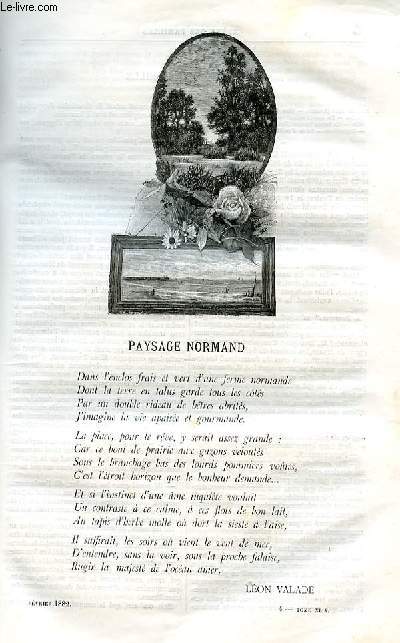 Le-livre.com
PAYSAGE NORMAND
Dans l'enclos frais et vert d'une ferme normande
Dont la terre en talus garde tous les côtés
Par un double rideau de hêtres abrités,
J'imagine la vie apaisée et gourmande.
La place, pour le rêve, y serait assez grande :
Car ce bout de prairie aux gazons veloutés
Sous le branchage bas des lourds pommiers voûtés,
C'est l'étroit horizon que le bonheur demande...
Et si l'instinct d'une âme inquiète voulait
Un contraste à ce calme, à ces flots de bon lait,
Au tapis d'herbe molle où dort la sieste à l'aise,
Il suffirait, les soirs où vient le vent de mer,
D'entendre, sans la voir, sous la proche falaise,
Rugir la majesté de l'océan amer.
LÉON VALADE
FÉVRIER 1882.
4 — TOME